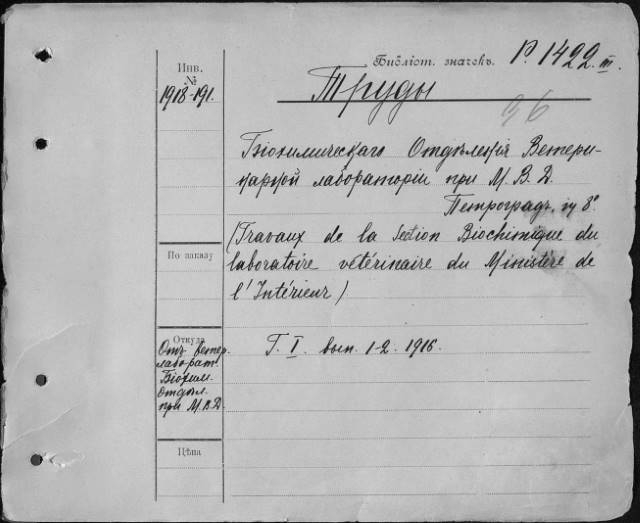 Инв.
№
1918-191.
Библіот. значекъ. P. 1422. III.
Труды
96
Біохимическаго Отдѣленія Ветери-
нарной лаборатории при М. В. Д.
Петроградъ, in 8°.
(Travaux de la Section Biochimique du
laboratoire vétérinaire du Ministère de
l'Intérieur)
По заказу
Откуда
Отъ ветер.
лаборат.
Біохим.
отдѣл.
при М.В.Д.
Г. I. вып. 1-2. 1916.
Цѣна